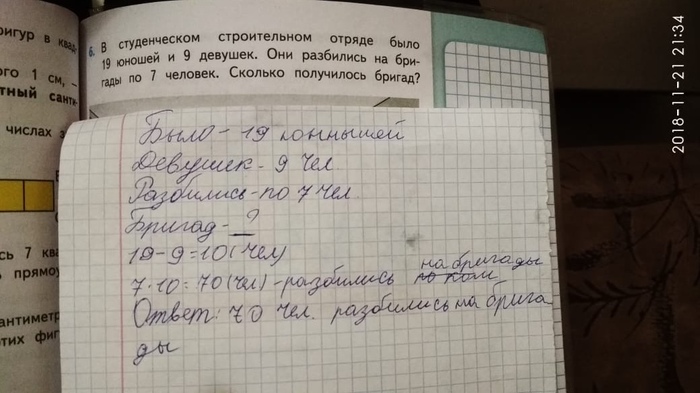 фигур в квад
ого 1 см, –
тный санти-
числах з
сь 7 ква
прямоу
антиметр
этих фиг
6. В студенческом строительном отряде было
19 юношей и 9 девушек. Они разбились на бри-
гады по 7 человек. Сколько получилось бригад?
Было - 19 юннышей
Девушек - 9 чел.
Разбились - по 7 чел.
Бригад - ?
19-9=10(чел)
7·10=70(чел) - разбились на бригады
Ответ: 70 чел. разбились на брига
ды
2018-11-21 21:34